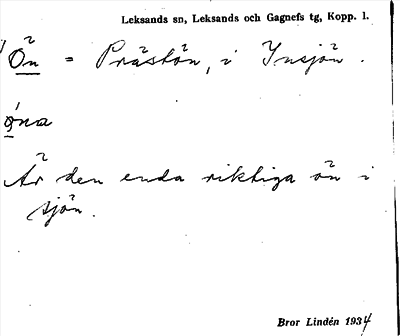 Leksands sn, Leksands och Gagnefs tg, Kopp. l.
Ön = Prästön, i Ynsjön.
øna
Är den enda riktiga ön i
sjön.
Bror Lindén 1934